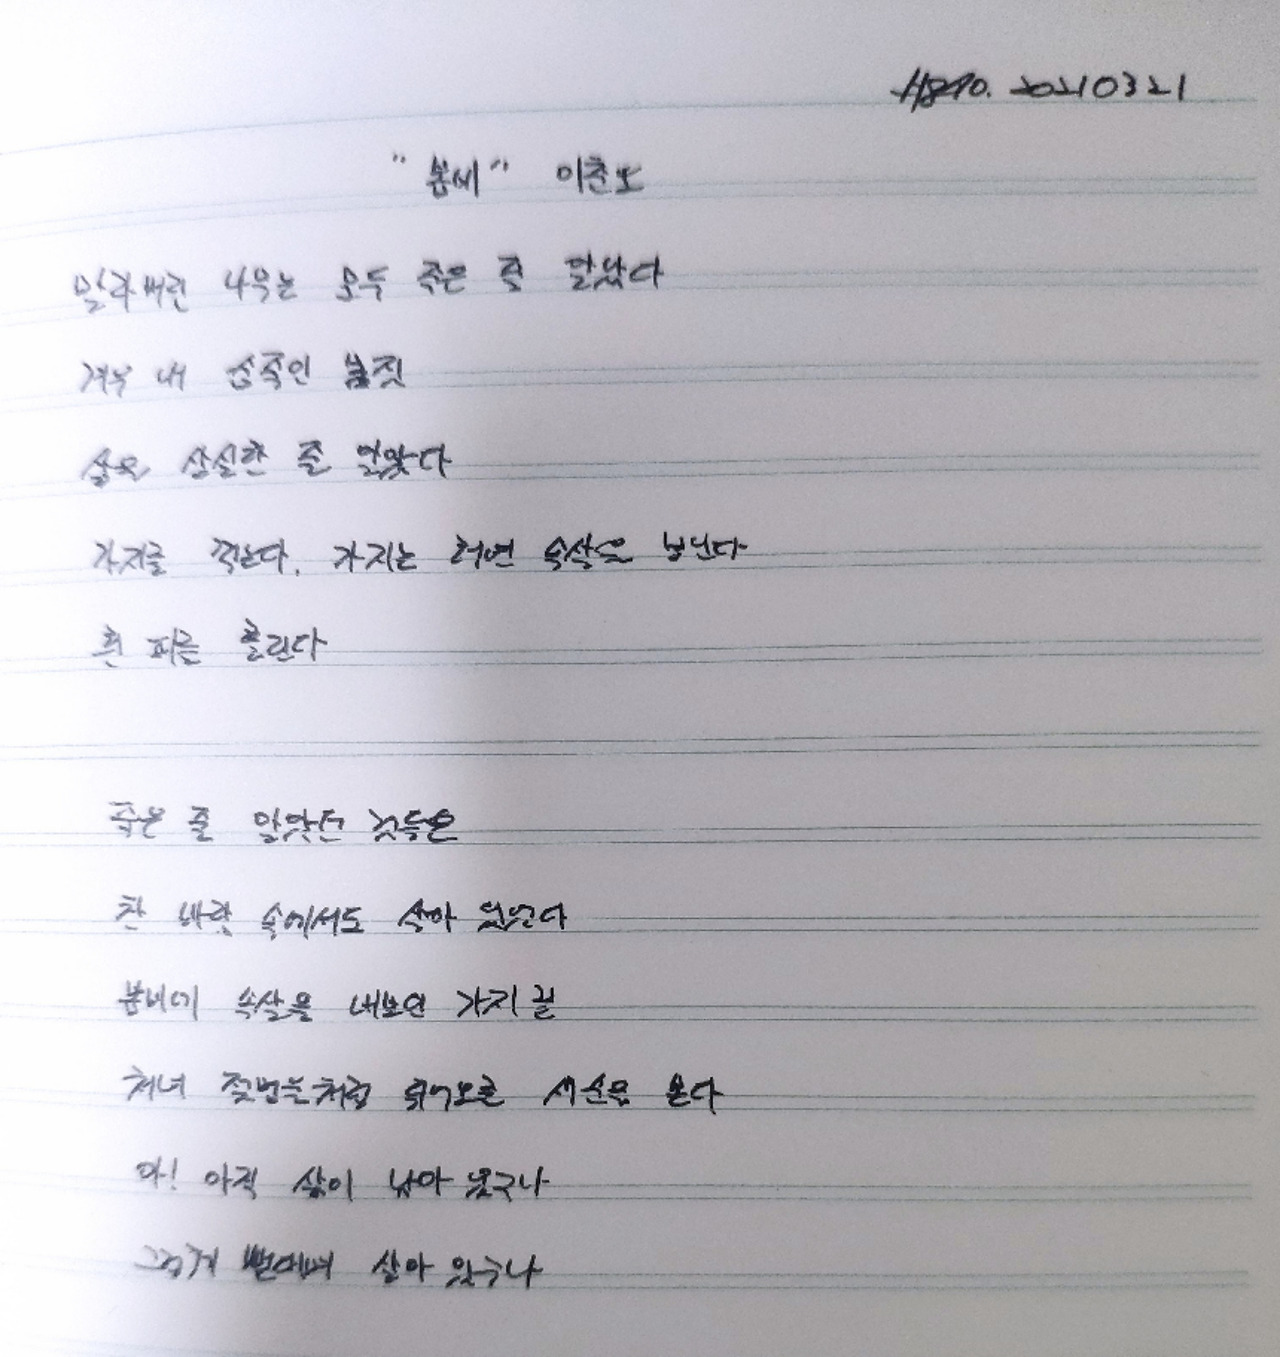 20210321
"봄비" 이춘오
말라버린 나무는 모두 죽은 줄 알았다
겨우 내 움죽인 몸짓
삶을 상실한 줄 알았다
가지를 꺾는다. 가지는 허연 속살을 보인다
흰 피를 흘린다
죽은 줄 알았던 것들은
찬 바람 속에서도 살아 있었다
봄비에 속살을 내보인 가지 끝
처녀 젖멍울처럼 솟아오른 새순을 본다
아! 아직 삶이 남아 있구나
그렇게 버티며 살아 있구나